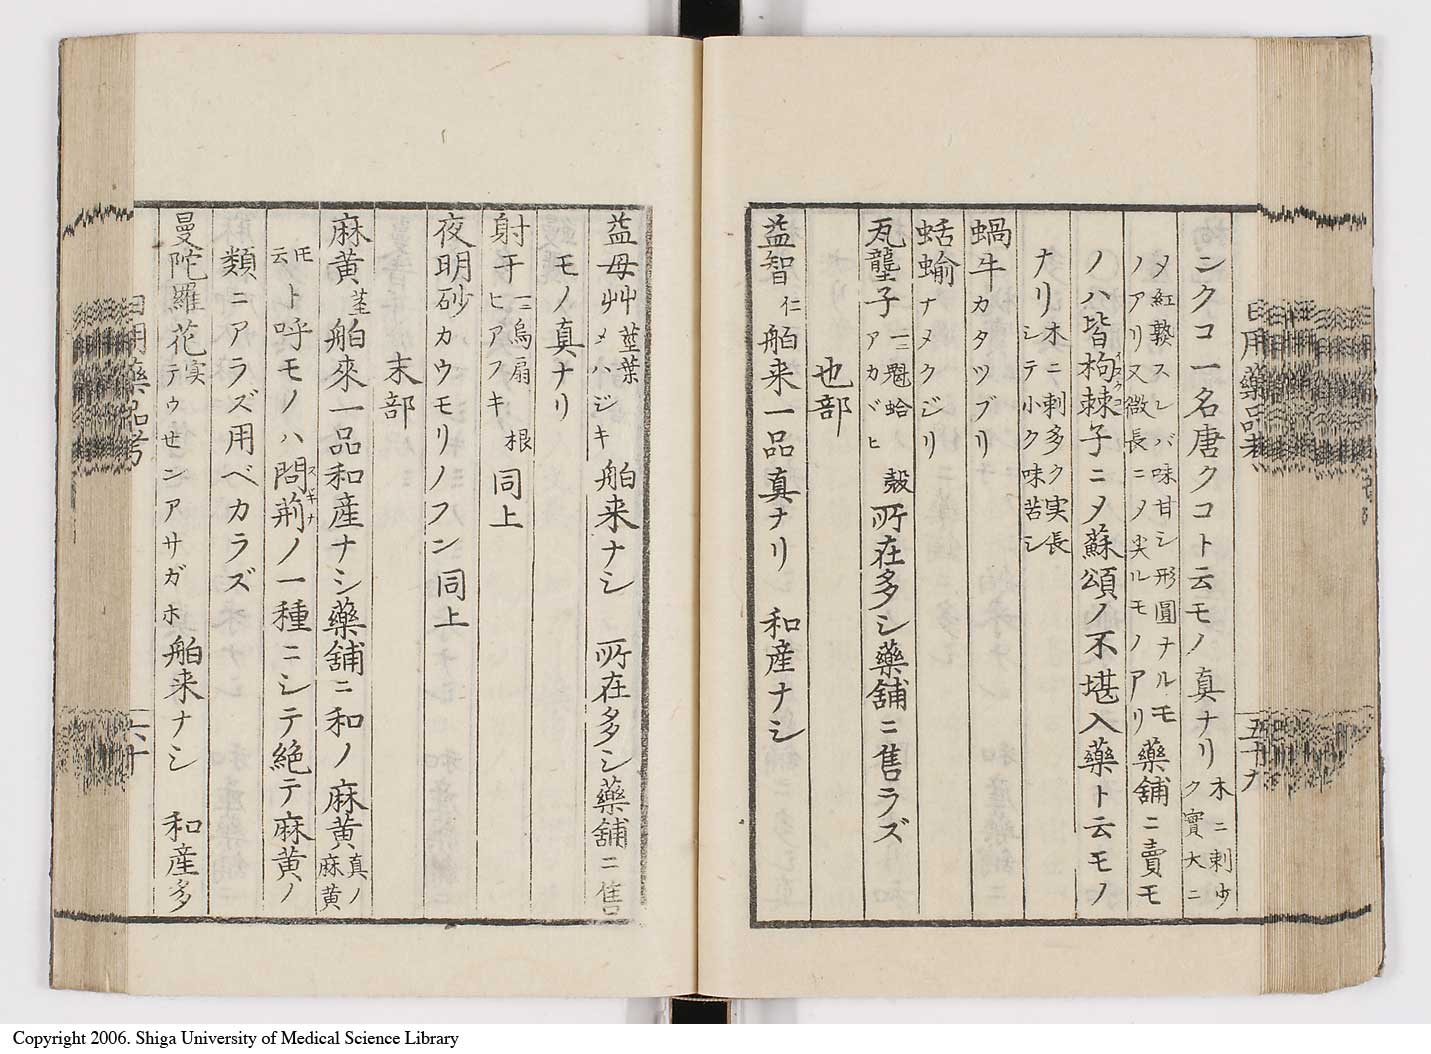 ンクコ一名唐クコト云モノ真ナリ 木ニ刺少ク實大ニ
〆紅𤍠スレバ味甘シ形圓ナルモノアリ又微長ニ〆尖ルモノアリ 藥舗ニ賣モ
ノハ皆枸棘子ニ〆蘇頌ノ不堪入藥ト云モノ
ナリ 木ニ刺多ク実長シテ小ク味苦シ
蝸牛カタツブリ
蛞蝓ナメクジリ
瓦壟子 一ニ魁蛤 アカヾヒ 殼 所在多シ藥舗ニ售ラズ
也部
益智仁 舶来一品真ナリ 和産ナシ
日用藥品考
五十九
益母艸 莖葉 メハジキ 舶来ナシ 所在多シ藥舗ニ售
モノ真ナリ
射干 一ニ烏扇 ヒアフキ 根 同上
夜明砂カウモリノフン同上
末部
麻黄 莖 舶來一品和産ナシ藥舗ニ和ノ麻黄 真ノ麻黄
𪜈云 ト呼モノハ問荊ノ一種ニシテ絶テ麻黄ノ
スギナ
類ニアラズ用ベカラズ
曼陀羅花 実 テウセンアサガホ 舶来ナシ 和産多
日用藥品考
六十
Copyright 2006. Shiga University of Medical Science Library